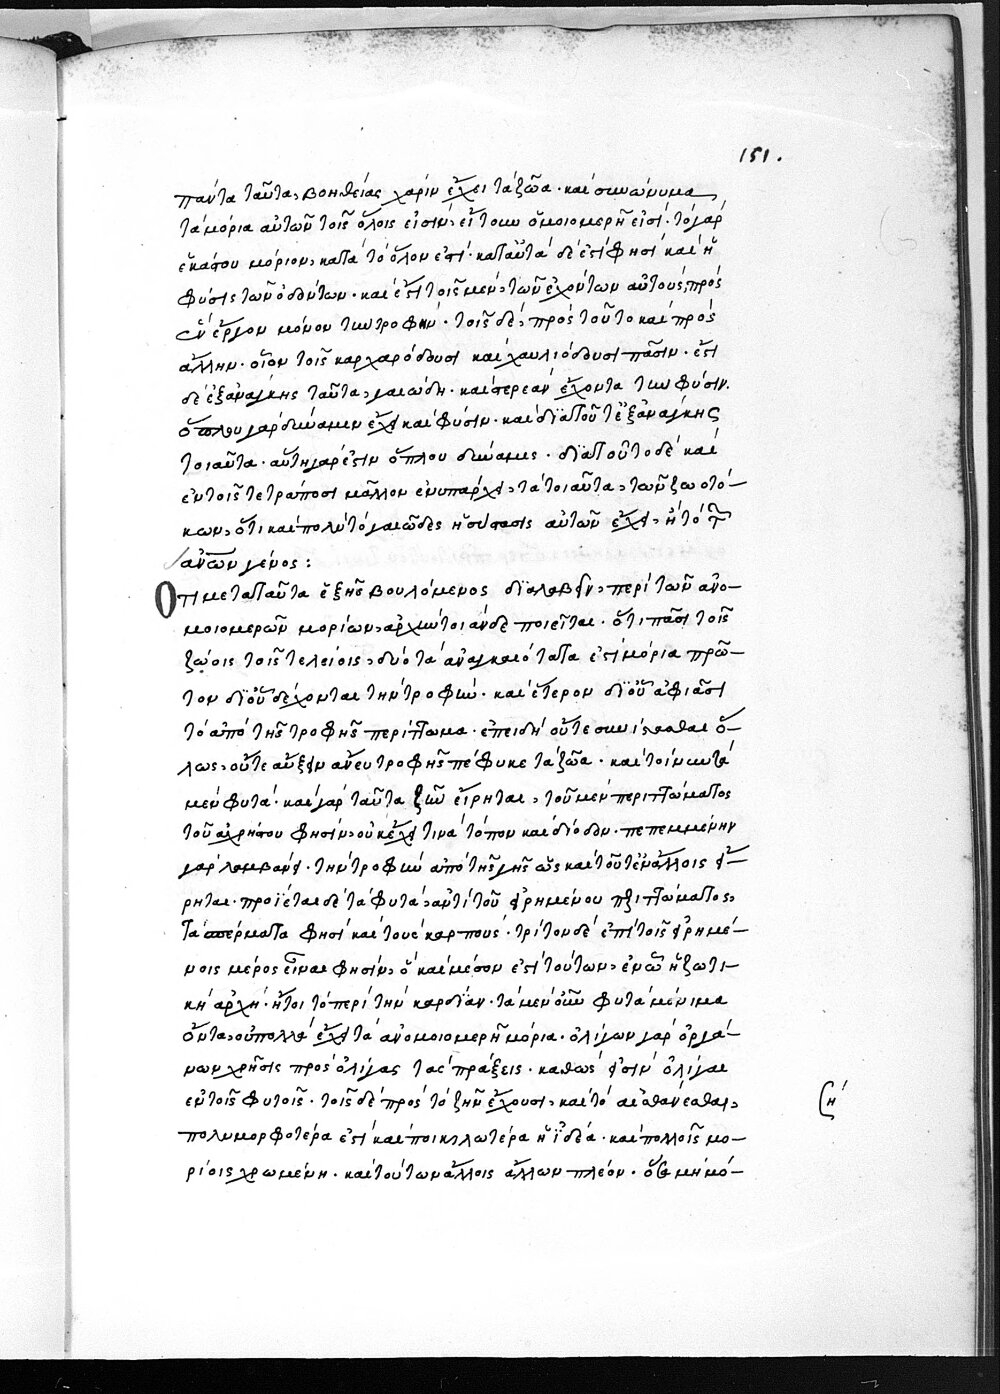 151.
πάντα ταῦτα, βοηθείας χάριν ἔχει τὰ ζῶα· καὶ συνώνυμα
τὰ μόρια αὐτῶν τοῖς ὅλοις εἰσὶν, εἴγουν ὁμοιομερῆ εἰσί· τὸ γὰρ
ἑκάστου μόριον, κατὰ τὸ ὅλον ἐστί· κατὰ ταῦτα δέ ἐστί φησι καὶ ἡ
φύσις τῶν ὀδόντων· καὶ ἔστι τοῖς μὲν, τῶν ἐχόντων αὐτοὺς, πρὸς
ἓν ἔργον μόνον τὴν τροφήν· τοῖς δὲ, πρὸς τοῦτο καὶ πρὸς
ἄλλην· οἷον τοῖς καρχαρόδουσι καὶ χαυλιόδουσι πᾶσιν· ἔστι
δὲ ἐξ ἀνάγκης ταῦτα, γαιώδη· καὶ στερεὰν ἔχοντα τὴν φύσιν.
ὅπλου γὰρ δύναμιν ἔχει καὶ φύσιν· καὶ διὰ τοῦτο ἐξ ἀνάγκης
τοιαῦτα· αὕτη γάρ ἐστιν ὅπλου δύναμις· διὰ τοῦτο δὲ καὶ
ἐν τοῖς τετράποσι μᾶλλον ἐνυπάρχει, τὰ τοιαῦτα, τῶν ζωοτό-
κων, ὅτι καὶ πολὺ τὸ γαιῶδες ἡ σύστασις αὐτῶν ἔχει, ἢ τὸ τῶν
ἀνῶν γένος:
Ὅτι μετὰ ταῦτα ἑξῆς βουλόμενος διαλαβεῖν, περὶ τῶν ἀνο-
μοιομερῶν μορίων, ἀρχὴν τοιάνδε ποιεῖται· ὅτι πᾶσι τοῖς
ζώοις τοῖς τελείοις, δύο τὰ ἀναγκαιότατα ἐστὶ μόρια πρῶ-
τον δι' οὗ δέχονται τὴν τροφήν· καὶ ἕτερον δι' οὗ ἀφιᾶσι
τὸ ἀπὸ τῆς τροφῆς περίττωμα· ἐπειδὴ οὔτε συνίστασθαι ὅ-
λως, οὔτε αὔξειν ἄνευ τροφῆς πέφυκε τὰ ζῶα· καὶ τοίνυν τὰ
μὲν φυτά· καὶ γὰρ ταῦτα ζῆν εἴρηται, τοῦ μὲν περιττώματος
τοῦ ἀχρήστου φησὶν, οὐκ ἔχει τινὰ τόπον καὶ δίοδον· πεπεμμένην
γὰρ λαμβάνει· τὴν τροφὴν ἀπὸ τῆς γῆς ὡς καὶ τοῦτ' ἐν ἄλλοις εἴ-
ρηται· προΐεται δὲ τὰ φυτὰ, ἀντὶ τοῦ εἰρημένου περιττώματος,
τὰ σπέρματα φησὶ καὶ τοὺς καρπούς· τρίτον δὲ ἐπὶ τοῖς εἰρημέ-
νοις μέρος εἶναι φησὶν, ὃ καὶ μέσον ἐστὶ τούτων, ἐν ᾧ ἡ ζωτι-
κὴ ἀρχή· ἤτοι τὸ περὶ τὴν καρδίαν· τὰ μὲν οὖν φυτὰ μόνιμα
ὄντα, οὐ πολλὰ ἔχει τὰ ἀνομοιομερῆ μόρια· ὀλίγων γὰρ ὀργά-
νων χρῆσις πρὸς ὀλίγας τὰς πράξεις· καθὼς εἰσὶν ὀλίγαι
ἐν τοῖς φυτοῖς· τοῖς δὲ πρὸς τὸ ζῆν ἔχουσι, καὶ τὸ αἰσθάνεσθαι,
πολυμορφοτέρα ἐστὶ καὶ ποικιλωτέρα ἡ ἰδέα· καὶ πολλοῖς μο-
ρίοις χρωμένη· καὶ τούτων ἄλλοις ἄλλων πλέον· ὅσα μὴ μό-